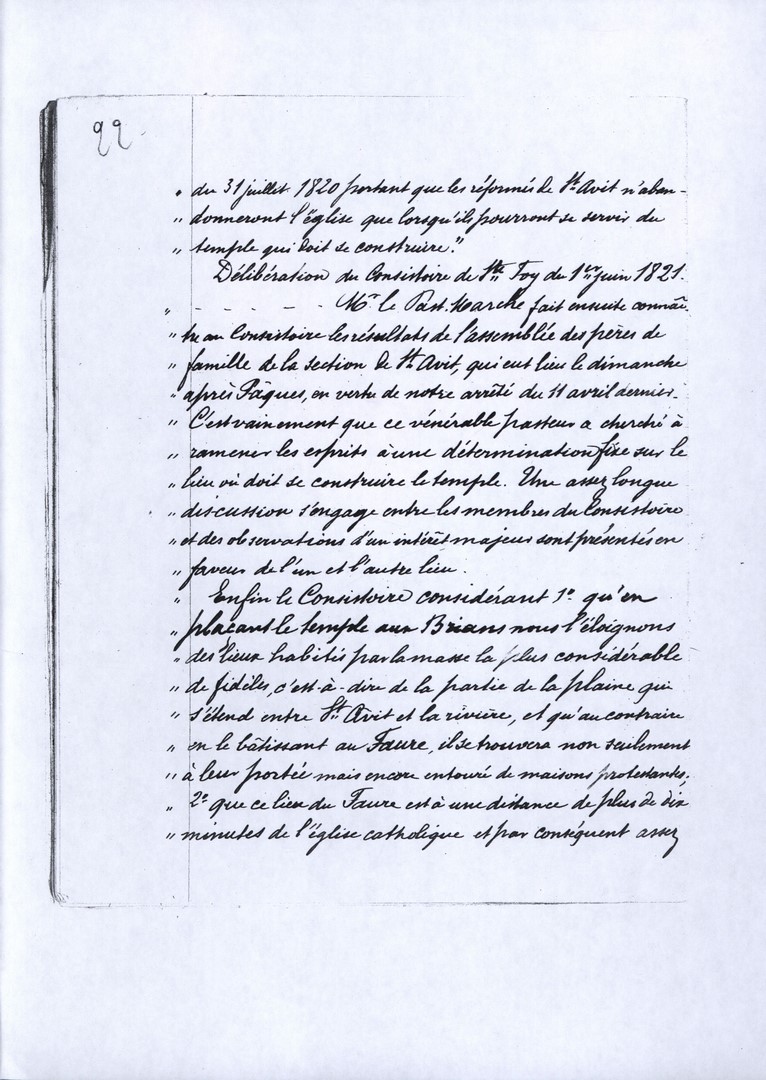 22.
" du 31 juillet 1820 portant que les réformés de St. Avit n'aban-
" donneront l'église que lorsqu'ils pourront se servir du
" temple qui doit se construire."
Délibération du Consistoire de Ste Foy du 1er juin 1821.
" - - - - - Mr. le Past. Marche fait ensuite connaî-
" tre au Consistoire les résultats de l'assemblée des pères de
" famille de la section de St. Avit, qui eut lieu le dimanche
" après Pâques, en vertu de notre arrêté du 11 avril dernier.
" C'est vainement que ce vénérable pasteur a cherché à
" ramener les esprits à une détermination fixe sur le
" lieu où doit se construire le temple. Une assez longue
" discussion s'engage entre les membres du Consistoire
" et des observations d'un intérêt majeur sont présentés en
" faveur de l'un et l'autre lieu.
" Enfin le Consistoire considérant 1º qu'en
" plaçant le temple aux Brians nous l'éloignons
" des lieux habités par la masse la plus considérable
" de fidèles, c'est-à-dire de la partie de la plaine qui
" s'étend entre St. Avit et la rivière, et qu'au contraire
" en le bâtissant au Faure, il se trouvera non seulement
" à leur portée mais encore entouré de maisons protestantes;
" 2º que ce lieu du Faure est à une distance de plus de dix
" minutes de l'église catholique et par conséquent assez